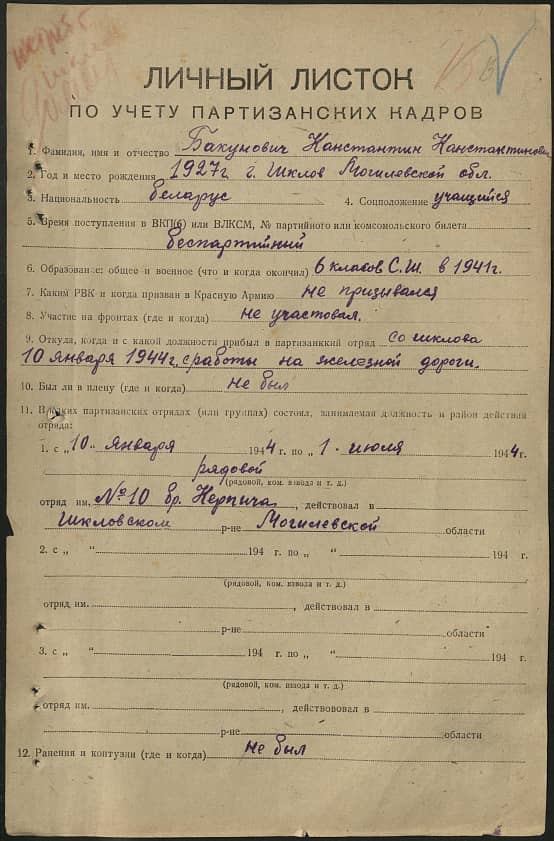 ЛИЧНЫЙ ЛИСТОК
ПО УЧЕТУ ПАРТИЗАНСКИХ КАДРОВ
1. Фамилия, имя и отчество Бакунович Канстантин Канстантинович
2. Год и место рождения 1927г г. Шклов Могилевской обл.
3. Национальность беларус 4. Соцположение учащийся
5. Время поступления в ВКП(б) или ВЛКСМ, № партийного или комсомольского билета
беспартийный
6. Образование: общее и военное (что и когда окончил) 6 класов С.Ш. в 1941г.
7. Каким РВК и когда призван в Красную Армию не призывался
8. Участие на фронтах (где и когда) не участовал.
9. Откуда, когда и с какой должности прибыл в партизанкий отряд со шклова
10 января 1944г. с работы на железной дороги.
10. Был ли в плену (где и когда) не был
11. В каких партизанских отрядах (или группах) состоял, занимаемая должность и район действия
отряда:
1. с „10„ января 1944 г. по „ 1 - июля 1944г.
рядовой
(рядовой, ком. взвода и т. д.)
отряд им. №10 бр. , действовал в
Шкловском р-не Могилевской области
2. с „ “ 194 г. по „ “ 194 г.
(рядовой, ком. взвода и т. д.)
отряд им. , действовал в
р-не области
3. с „ “ 194 г. по „ “ 194 г.
(рядовой, ком. взвода и т. д.)
отряд им. , действововал в
р-не области
12. Ранения и контузии (где и когда) не был